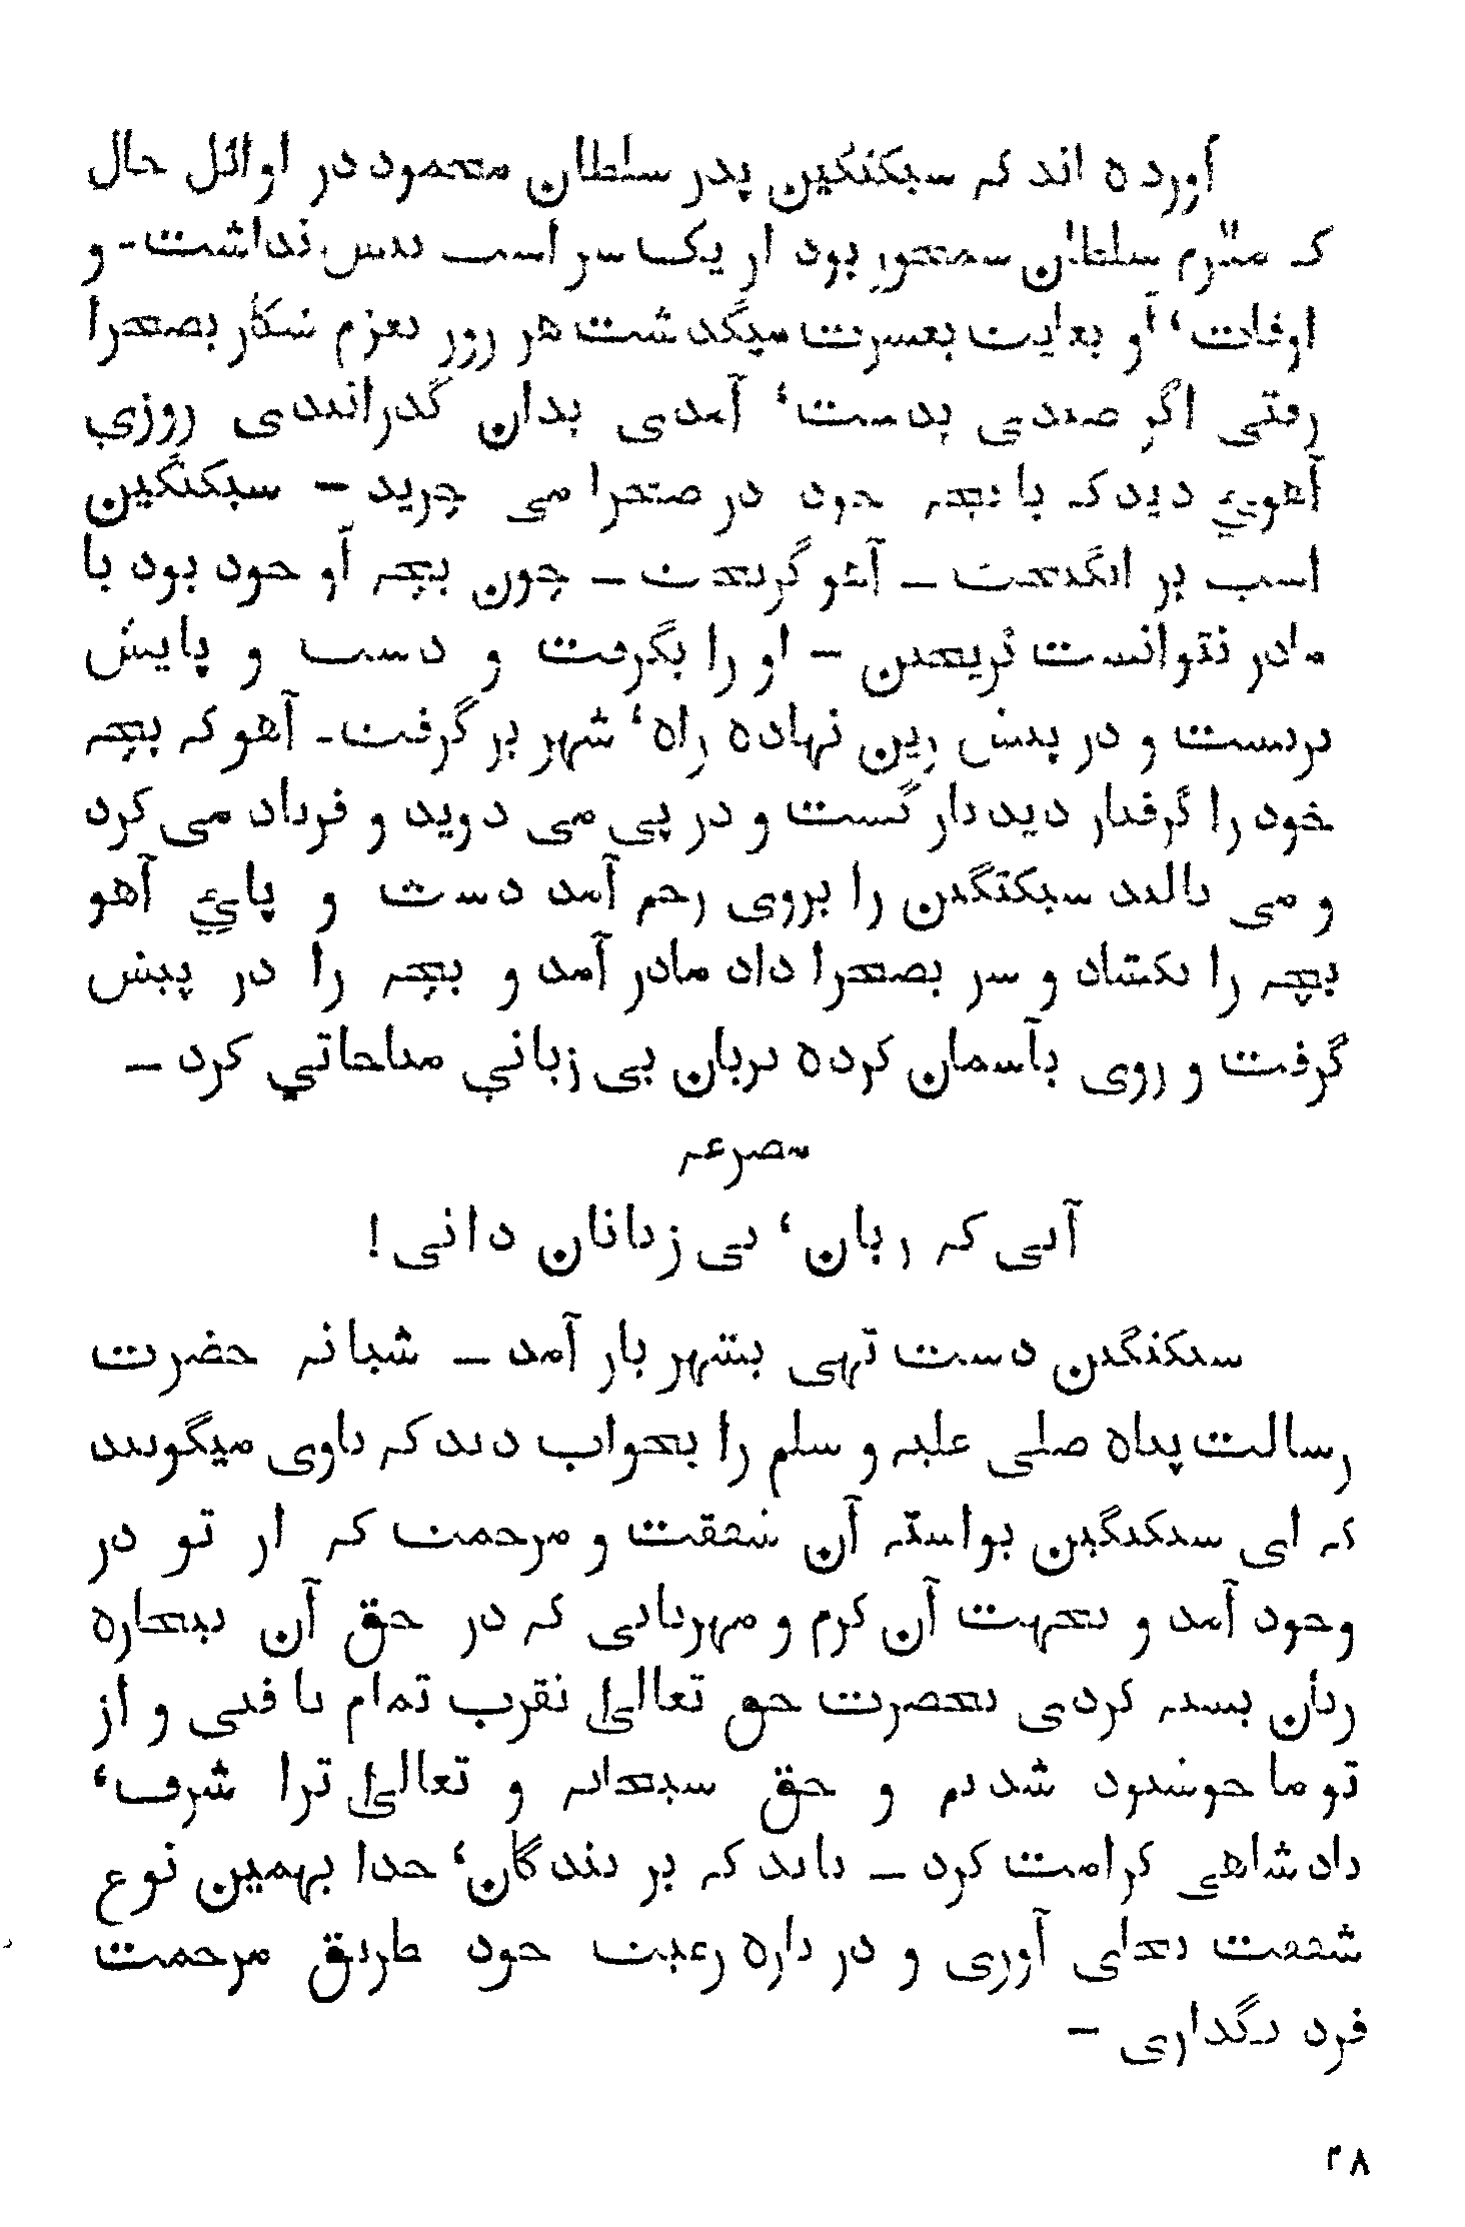 آورده اند که سبکتگین پدر سلطان محمود در اوائل حال
که ملازم سلطان سنجور بود از یک سر اسب بیش نداشت - و
اوقات، او بغایت بعسرت میگذشت هر روز بعزم شکار بصحرا
رفتی اگر صیدی بدست، آمدی بدان گذرانیدی روزی
آهوئی دید که با بچه خود در صحرا می چرید - سبکتگین
اسب بر انگیخت - آهو گریخت - چون بچه او خود بود با
مادر نتوانست گریختن - او را بگرفت و دست و پایش
بربست و در پیش زین نهاده راه، شهر بر گرفت - آهو که بچه
خود را گرفتار دید باز گشت و در پی می دوید و فریاد می کرد
و می نالید سبکتگین را بروی رحم آمد دست و پائے آهو
بچه را بکشاد و سر بصحرا داد مادر آمد و بچه را در پیش
گرفت و روی بآسمان کرده بزبان بی زبانی مناجاتی کرد -
مصرعه
آنی که زبان، بی زبانان دانی!
سبکتگین دست تهی بشهر باز آمد - شبانه حضرت
رسالت پناه صلی علیه و سلم را بخواب دید که باوی میگویند
که ای سبکتگین بواسته آن شفقت و مرحمت که از تو در
وجود آمد و بجهت آن کرم و مهربانی که در حق آن بیچاره
زبان بسته کردی بحضرت حق تعالیٰ تقرب تمام یافتی و از
تو ما خوشنود شدیم و حق سبحانه و تعالیٰ ترا شرف،
دادشاهی کرامت کرد - باید که بر بندگان، خدا بهمین نوع
شفقت بجای آوری و در باره رعیت خود طریق مرحمت
فرد نگذاری -
۴۸